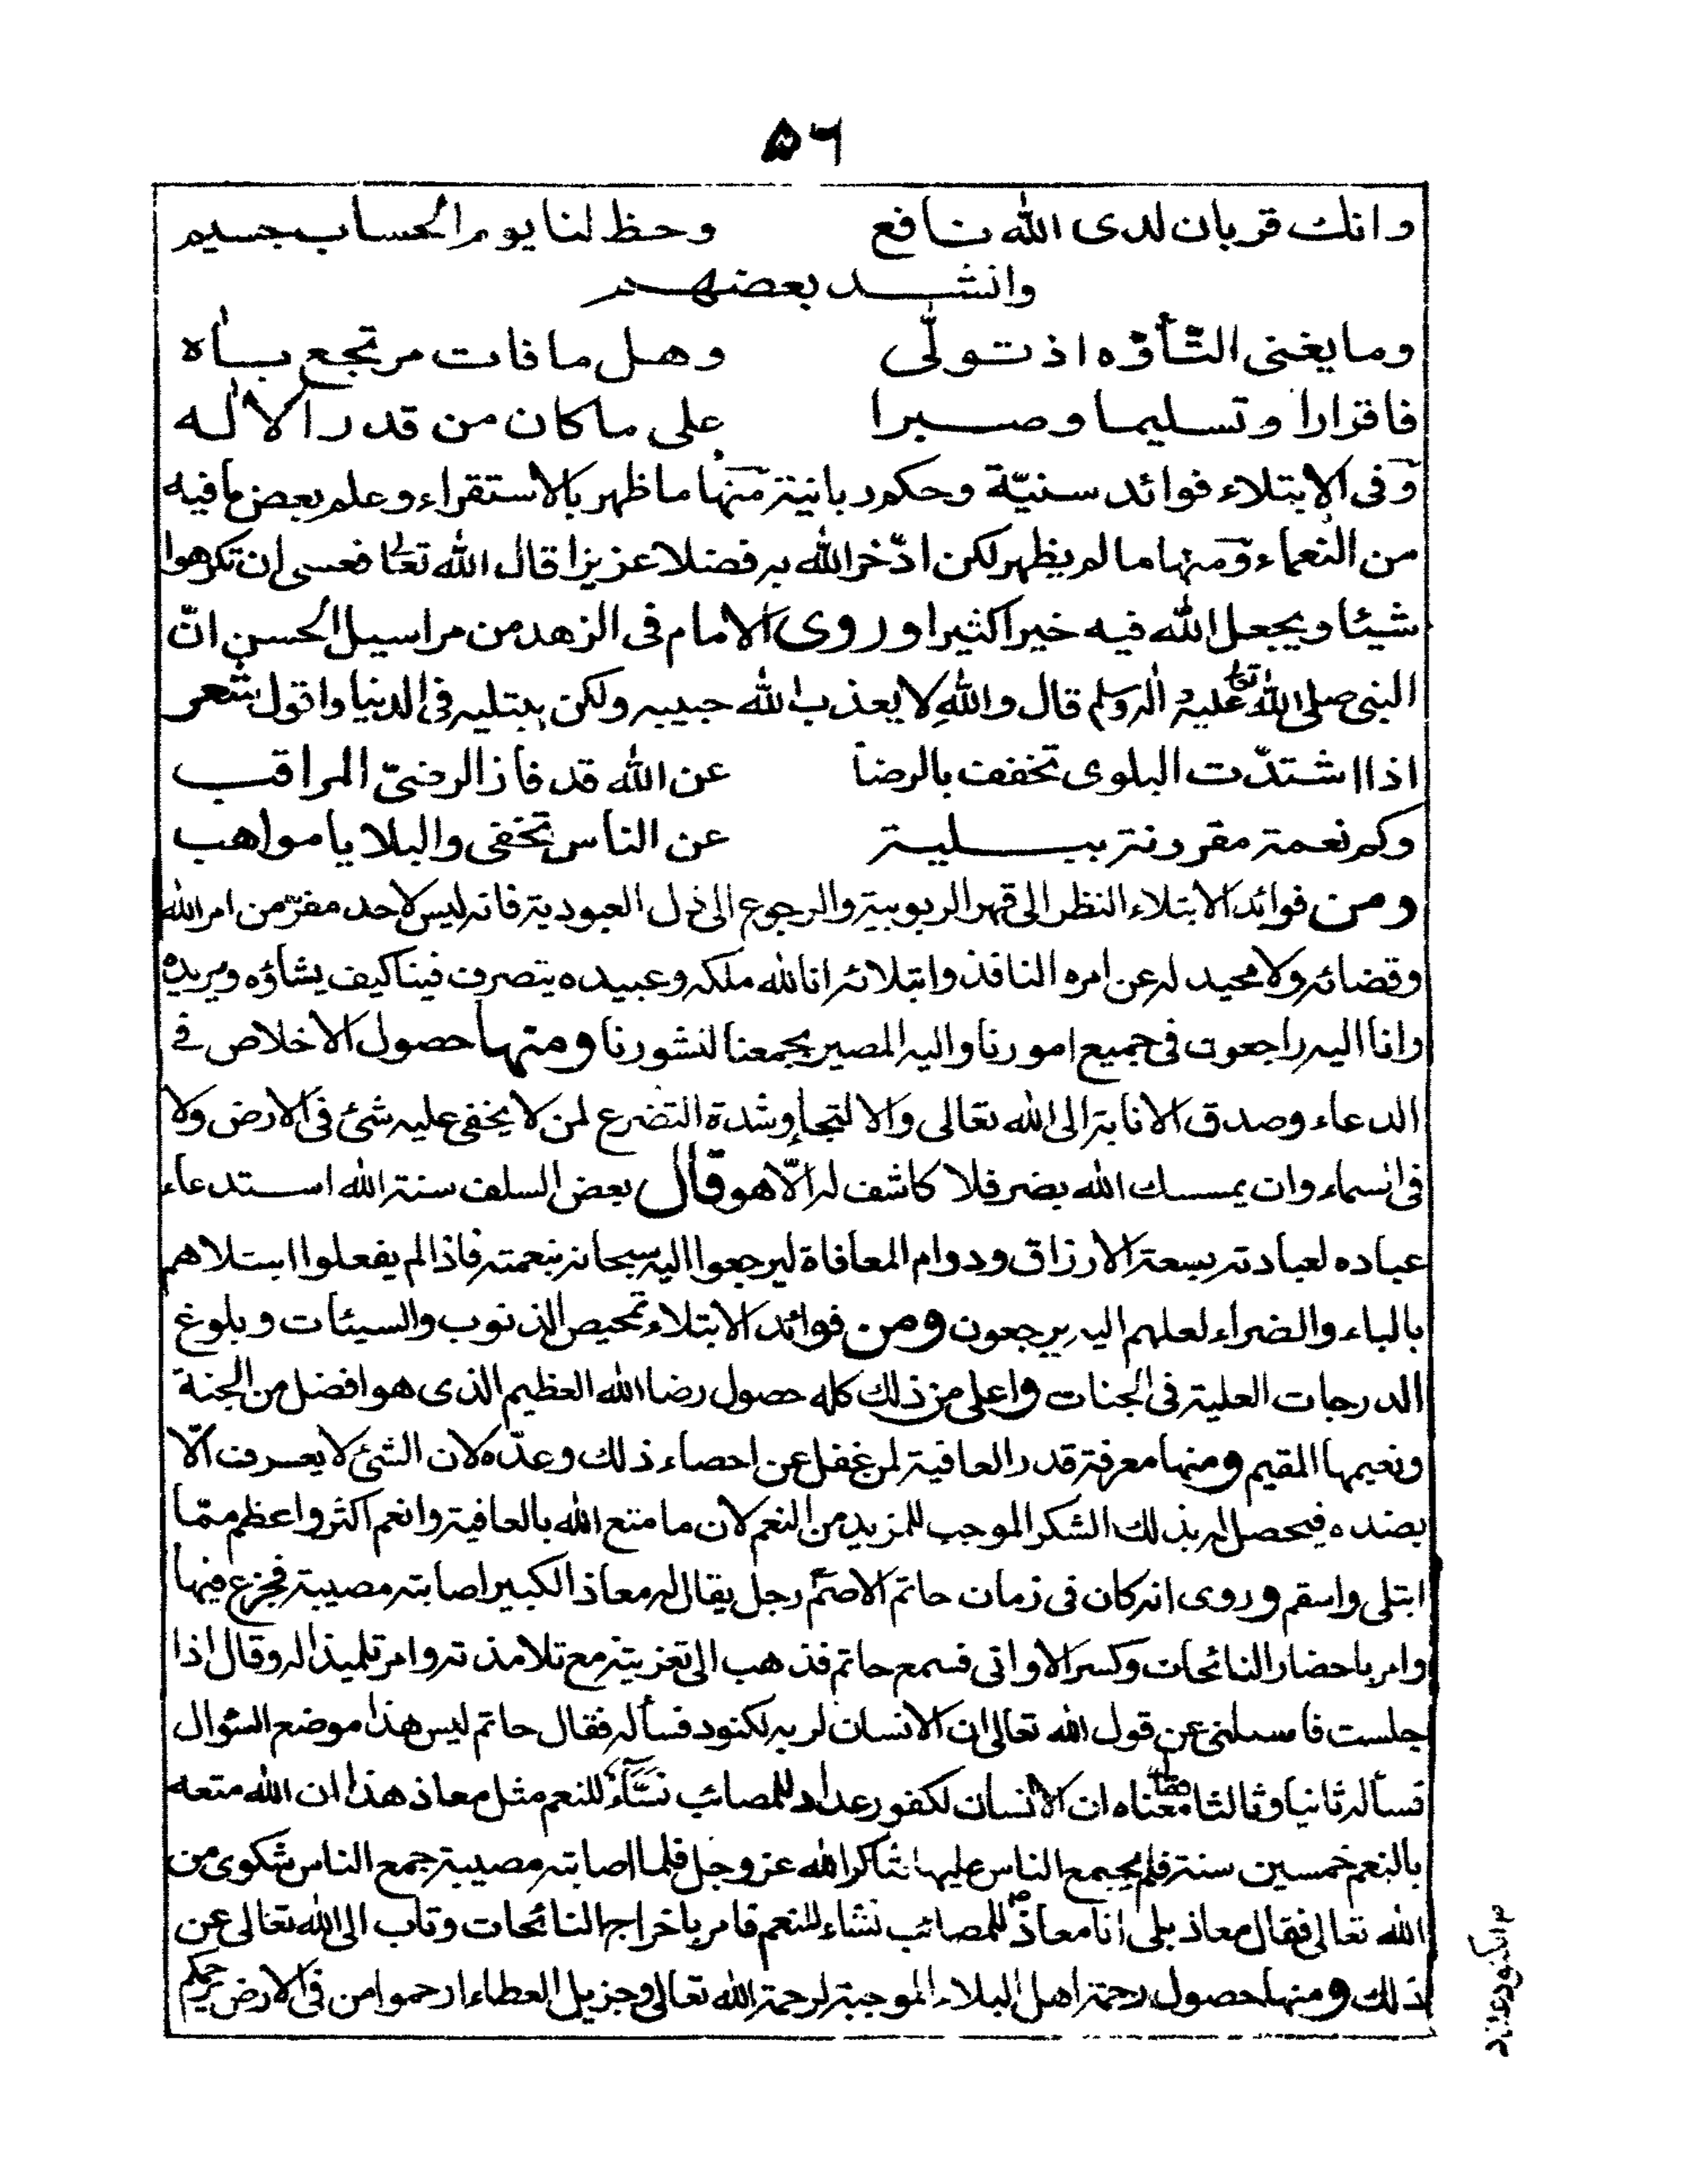 ٥٦
وانك قربان لدى الله نافع وحظ لنا يوم الحساب جسيم
وانشد بعضهم
وما يغنى التأوّه اذ تولّى وهل ما فات مرتجع بآه
فاقرارا وتسليما وصبرا على ما كان من قدر الاله
وفى الابتلاء فوائد سنيّة وحكم ربانية منها ما ظهر بالاستقراء وعلم بعض ما فيه
من النعماء ومنها ما لم يظهر لكن ادّخر الله به فضلا عزيزا قال الله تعالى فعسى ان تكرهوا
شيئا ويجعل الله فيه خيرا كثيرا وروى الامام فى الزهد من مراسيل الحسن انّ
النبى صلى الله تعالى عليه واله وسلم قال والله لا يعذب الله حبيبه ولكن يبتليه فى الدنيا واقول شعر
اذا اشتدّت البلوى تخفف بالرضا عن الله قد فاز الرضىّ المراقب
وكم نعمة مقرونة ببلية عن الناس تخفى والبلايا مواهب
ومن فوائد الابتلاء النظر الى قهر الربوبية والرجوع الى ذل العبودية فانه ليس لاحد مفرّ من امر الله
وقضائه ولا محيد له عن امره النافذ وابتلائه انا لله ملكه وعبيده يتصرف فينا كيف يشاؤه ويريده
وانا اليه راجعون فى جميع امورنا واليه المصير يجمعنا لنشورنا ومنها حصول الاخلاص فى
الدعاء وصدق الانابة الى الله تعالى والالتجاء وشدة التضرع لمن لا يخفى عليه شئ فى الارض ولا
فى السماء وان يمسسك الله بضر فلا كاشف له الّا هو قال بعض السلف سنة الله استدعاء
عباده لعبادته بسعة الارزاق ودوام المعافاة ليرجعوا اليه سبحانه بنعمته فاذا لم يفعلوا ابتلاهم
بالباء والضراء لعلهم اليه يرجعون ومن فوائد الابتلاء تمحيص الذنوب والسيئات وبلوغ
الدرجات العلية فى الجنات واعلى من ذلك كله حصول رضا الله العظيم الذى هو افضل من الجنة
ونعيمها المقيم ومنها معرفة قدر العافية لمن غفل عن احصاء ذلك وعدّه لان الشئ لا يعرف الّا
بضده فيحصل له بذلك الشكر الموجب للمزيد من النعم لان ما متع الله بالعافية وانعم اكثر واعظم ممّا
ابتلى واسقم وروى انه كان فى زمان حاتم الاصمّ رجل يقال له معاذ الكبير اصابته مصيبة فجزع فيها
وامر باحضار النائحات وكسر الاوانى فسمع حاتم فذهب الى تعزيته مع تلامذته وامر تلميذا له وقال اذا
جلست فاسئلنى عن قول الله تعالى ان الانسان لربه لكنود فسأله فقال حاتم ليس هذا موضع السؤال
فسأله ثانيا وثالثا فقال معناه ان الانسان لكفور عداد للمصائب نسّاء للنعم مثل معاذ هذا ان الله متعه
بالنعم خمسين سنة فلم يجمع الناس عليها شاكرا لله عز وجل فلما اصابته مصيبة جمع الناس شكوى من
الله تعالى فقال معاذ بلى انا معاذ للمصائب نشاء للنعم فامر باخراج النائحات وتاب الى الله تعالى عن
ذلك ومنها حصول رحمة اهل البلاء الموجبة لرحمة الله تعالى وجزيل العطاء ارحموا من فى الارض يرحمكم